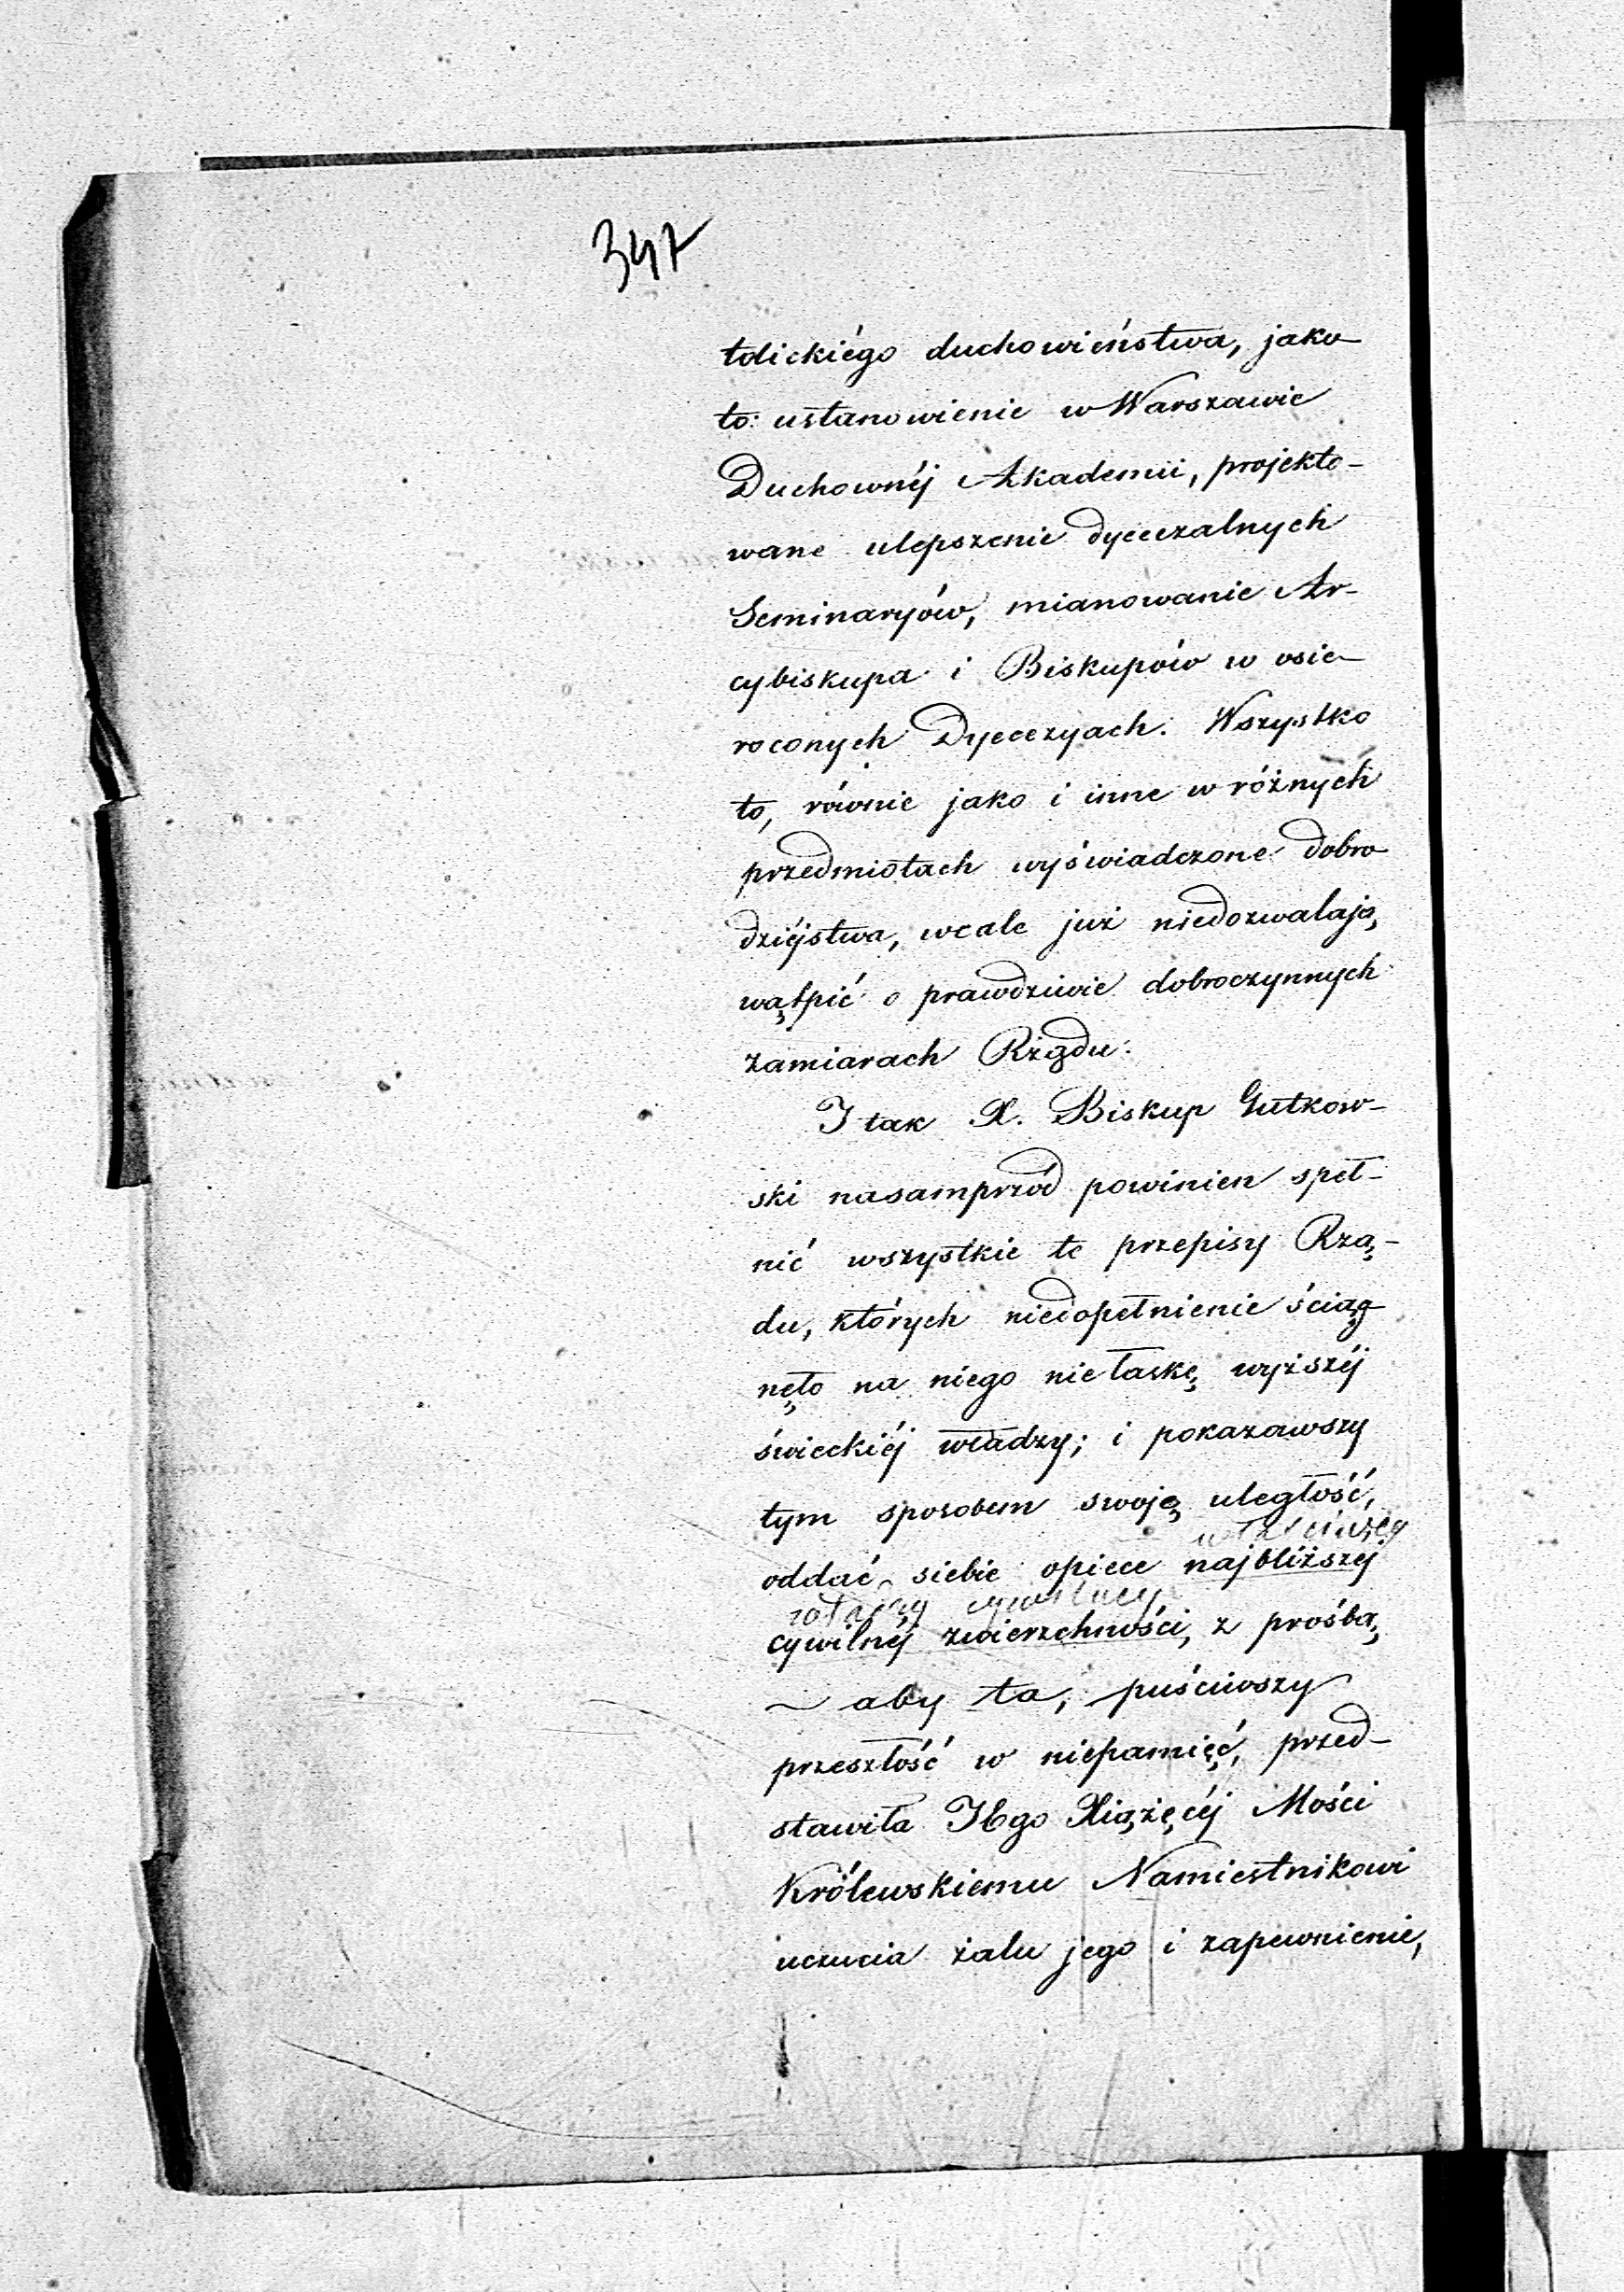 347
tolickiégo duchowieństwa, jako
to: ustanowienie w Warszawie
Duchownéj Akademii, projekto-
wane ulepszenie dyecezalnych
Seminaryów, mianowanie Ar-
cybiskupa i Biskupów w osie-
roconych Dyecezyach. Wszystko
to, równie jako i inne w różnych
przedmiotach wyświadczone dobro-
dziéjstwa, wcale już niedozwalają
wątpić o prawdziwie dobroczynnych
zamiarach Rządu.
I tak X. Biskup Gutkow-
ski nasamprzód powinien speł-
nić wszystkie te przepisy Rzą-
du, których niedopełnienie ściąg-
nęło na niego niełaskę wyższéj
świeckiéj władzy; i pokazawszy
tym sposobem swoję uległość,
właściwéy
oddać siebie opiece najbliższéj
cywilnéj zwierzchności, z prośbą,
~ aby ta, puściwszy
przeszłość w niepamięć, przed-
stawiła JEgo Xiążęcéj Mości
Królewskiemu Namiestnikowi
uczucia żalu jego i zapewnienie,